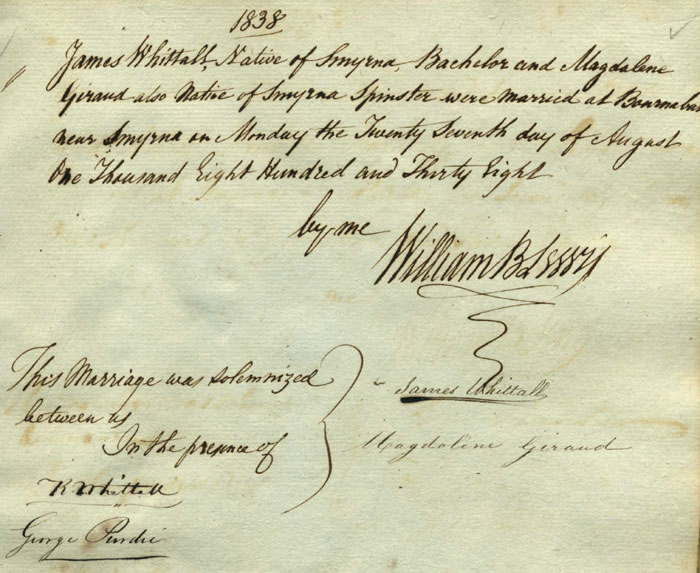 1838
James Whittall, Native of Smyrna, Bachelor and Magdalene
Giraud also Native of Smyrna Spinster were married at Bournabat
near Smyrna on Monday the Twenty Seventh day of August
One Thousand Eight Hundred and Thirty Eight
by me
William B Lewis
This Marriage was solemnized
between us
James Whittall
Magdaline Giraud
In the presence of
R Whittall
George Perdie